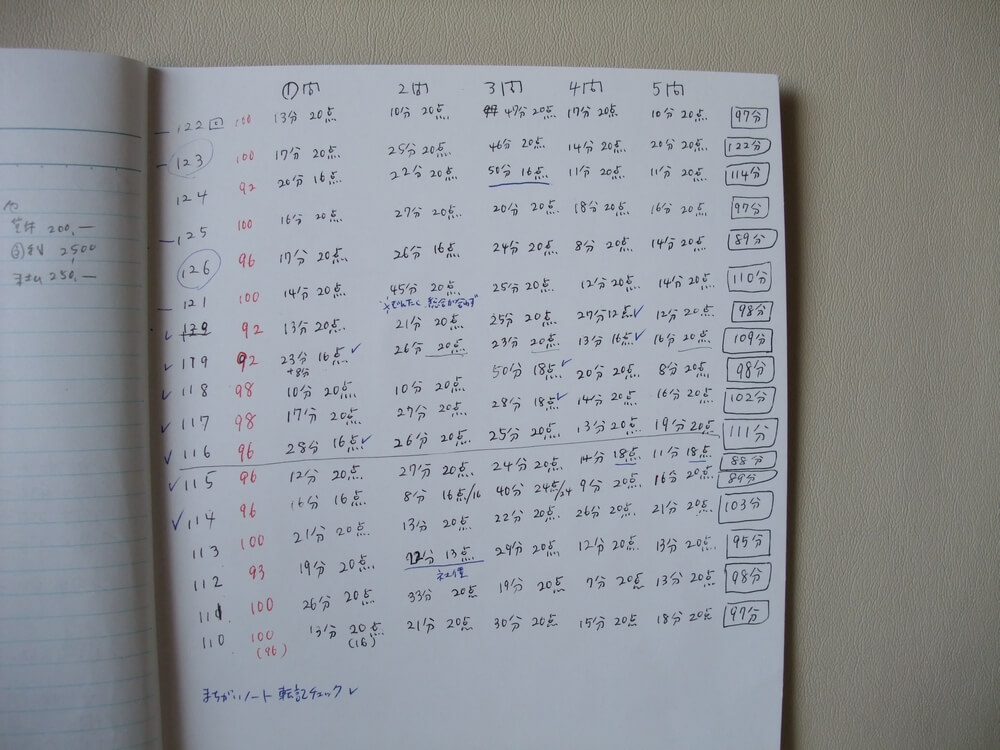 ①問 2問 3問 4問 5問
122回 100 13分 20点 10分 20点 47分 20点 17分 20点 10分 20点 97分
123 100 17分 20点 25分 20点 46分 20点 14分 20点 20分 20点 122分
124 92 20分 16点 22分 20点 50分 16点 11分 20点 11分 20点 114分
125 100 16分 20点 27分 20点 20分 20点 18分 20点 16分 20点 97分
126 96 17分 20点 26分 16点 24分 20点 8分 20点 14分 20点 89分
121 100 14分 20点 45分 20点 25分 20点 12分 20点 14分 20点 110分
92 13分 20点 21分 20点 25分 20点 27分 12点✓ 12分 20点 98分
✓ 119 92 23分 16点✓ 26分 20点 23分 20点 13分 16点✓ 16分 20点 109分
+8分
✓ 118 98 10分 20点 10分 20点 50分 18点✓ 20分 20点 8分 20点 98分
✓ 117 98 17分 20点 27分 20点 28分 18点✓ 14分 20点 16分 20点 102分
✓ 116 96 28分 16点✓ 26分 20点 25分 20点 13分 20点 19分 20点 111分
✓ 115 96 12分 20点 27分 20点 24分 20点 14分 18点 11分 18点 88分
✓ 114 96 16分 16点 8分 16点/16 40分 24点/24 9分 20点 16分 20点 89分
113 100 21分 20点 13分 20点 22分 20点 26分 20点 21分 20点 103分
112 93 19分 20点 22分 13点 29分 20点 12分 20点 13分 20点 95分
社債
111 100 26分 20点 33分 20点 19分 20点 7分 20点 13分 20点 98分
110 100 13分 20点 21分 20点 30分 20点 15分 20点 18分 20点 97分
(96) (16)
まちがいノート 転記チェック✓
200.—
2500
250.—